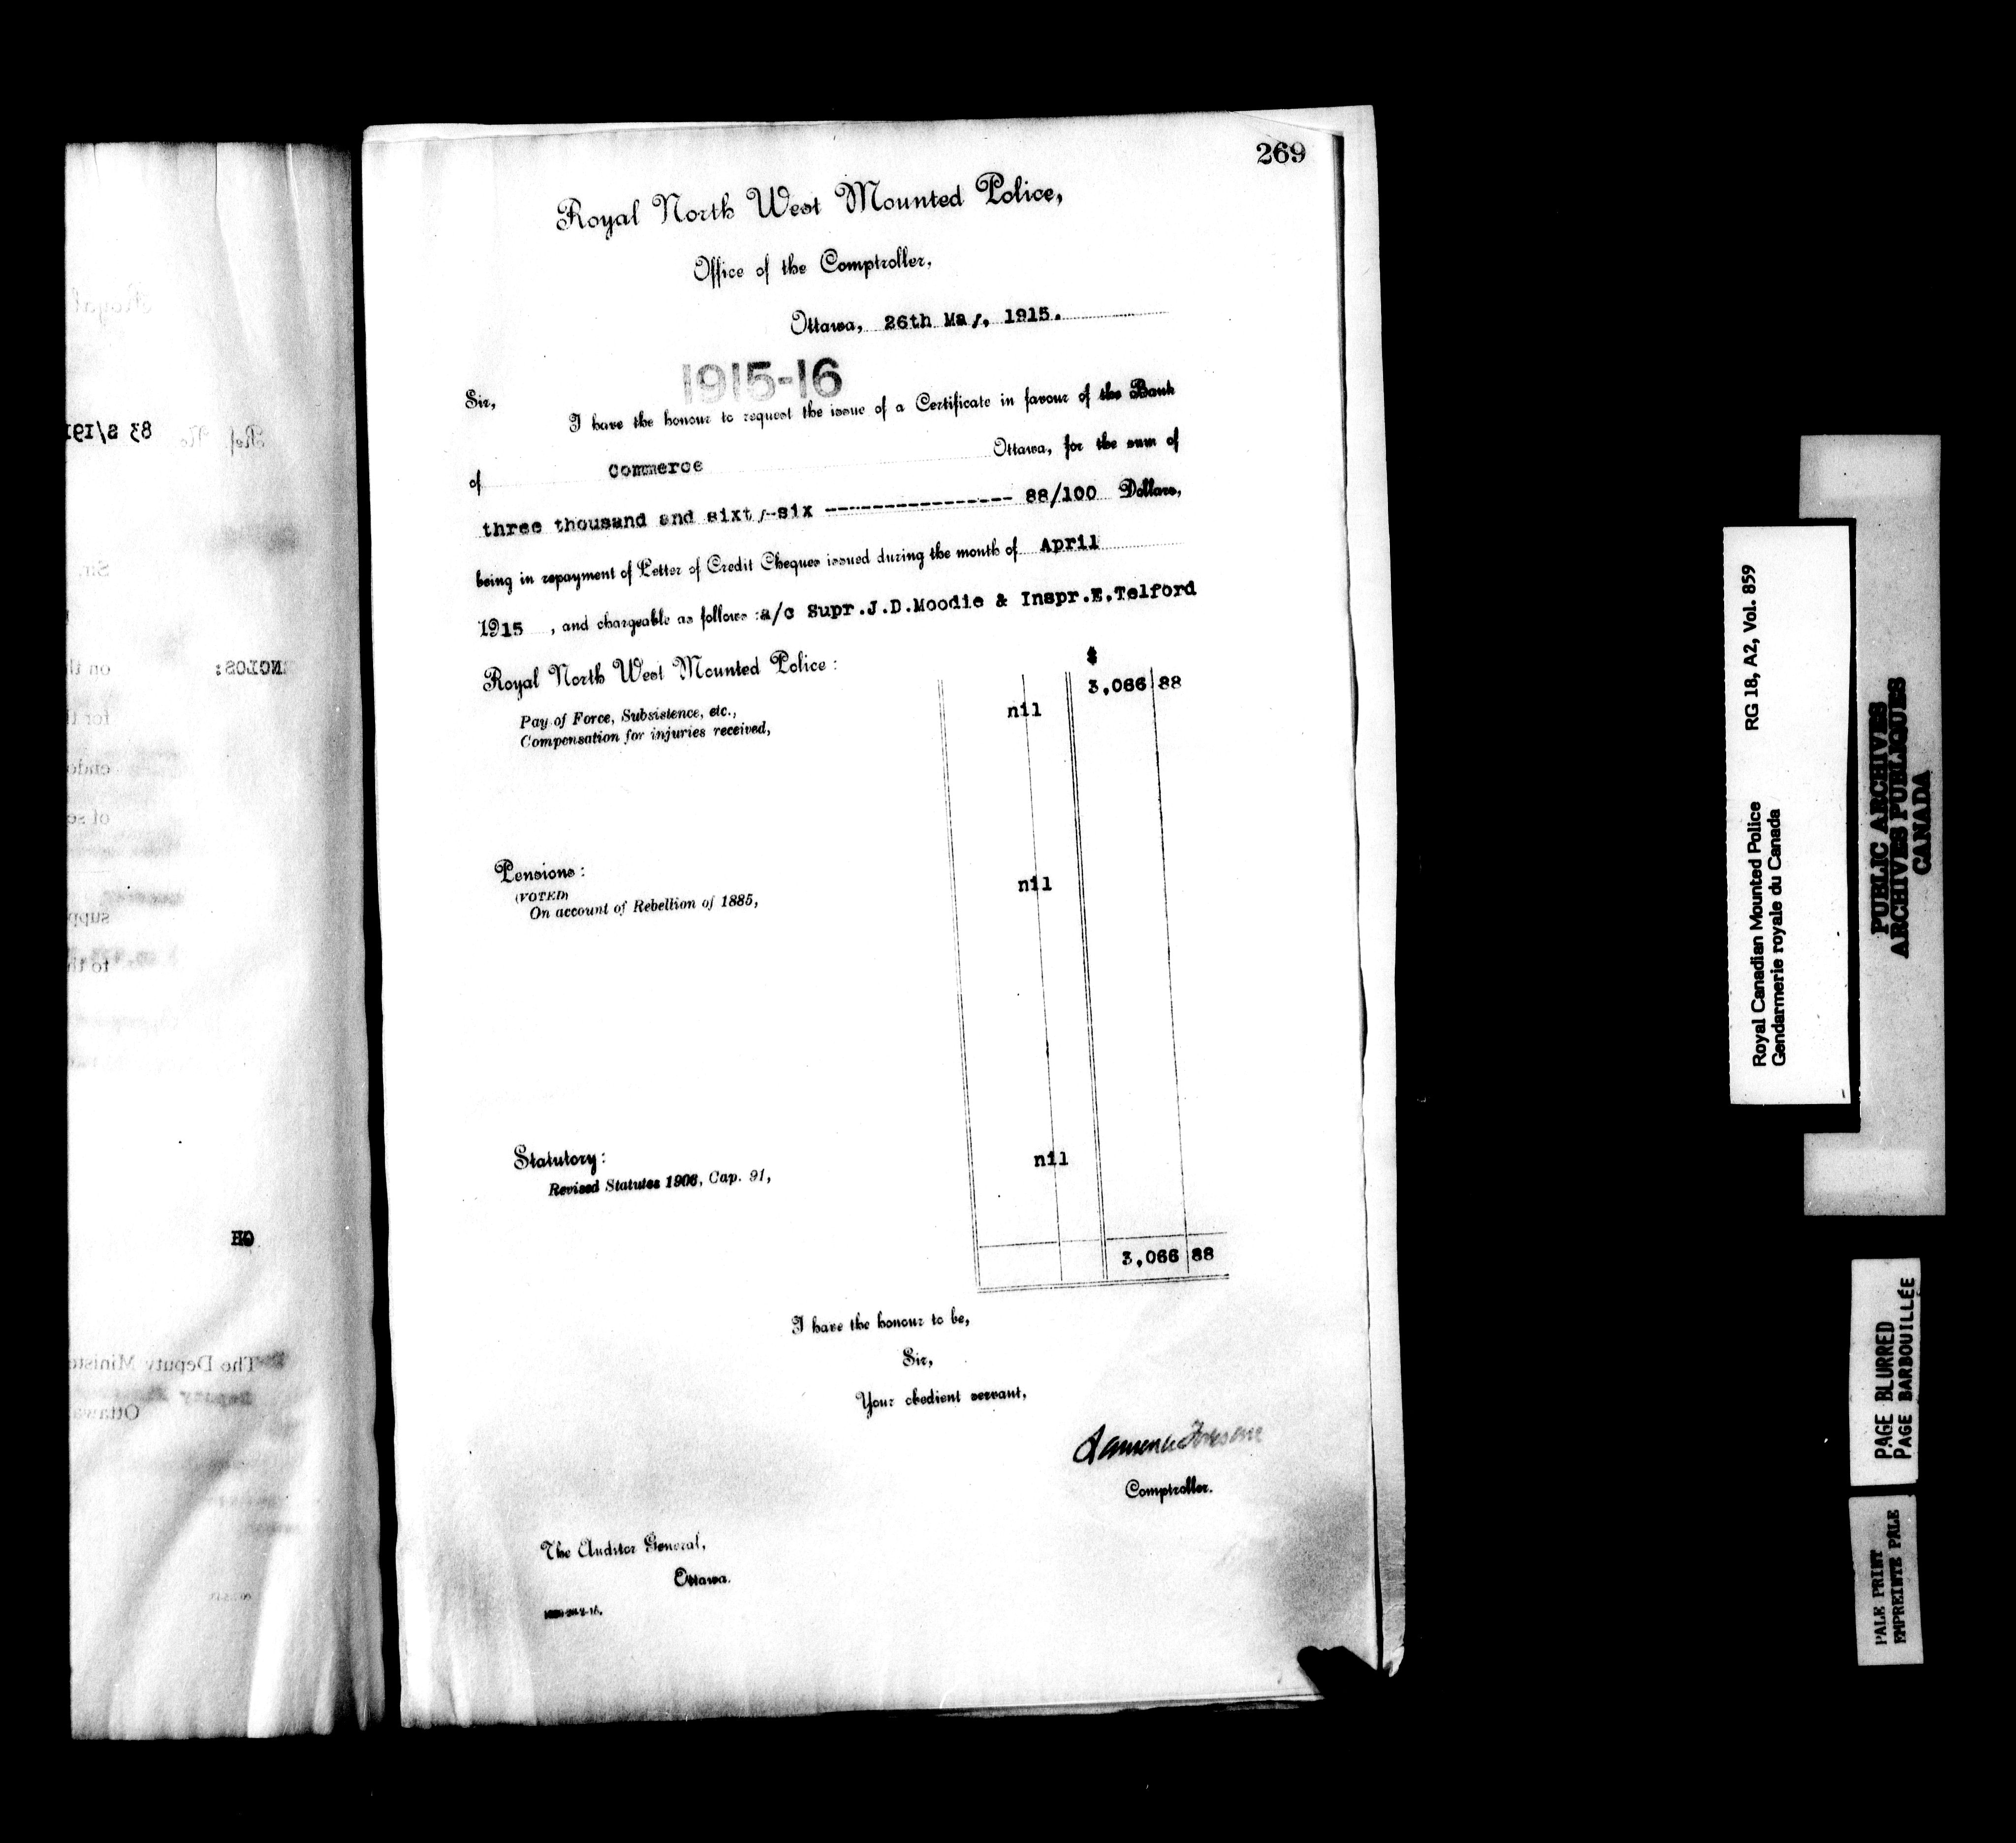 269
Royal North West Mounted Police,
Office of the Comptroller,
Ottawa, 26th May, 1915.
1915-16
Sir,
I have the honour to request the issue of a Certificate in favour of the Bank
of Commerce Ottawa, for the sum of
three thousand and sixty-six ---------------- 88/100 Dollars,
being in repayment of Letter of Credit Cheques issued during the month of April
1915 , and chargeable as follows :a/c Supr.J.D.Moodie & Inspr.E.Telford
Royal North West Mounted Police :
$
Pay of Force, Subsistence, etc., 3,066 88
Compensation for injuries received, nil
Pensions :
(VOTED)
On account of Rebellion of 1885, nil
Statutory :
Revised Statutes 1906, Cap. 91, nil
3,066 88
I have the honour to be,
Sir,
Your obedient servant,
Comptroller.
The Auditor General,
Ottawa.
Ref. No 83 S/191
Sir,
ENCLOS:
on th
for th
endo
of se
supp
to th
GH
The Deputy Ministe
Deputy
Ottawa
Royal Canadian Mounted Police RG 18, A2, Vol. 859
Gendarmerie royale du Canada
PUBLIC ARCHIVES
ARCHIVES PUBLIQUES
CANADA
PAGE BLURRED
PAGE BARBOUILLÉE
PALE PRINT
EMPREINTE PÂLE